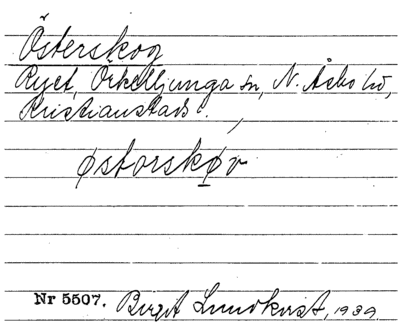 Österskog
Ryet, Örkelljunga sn, N. Åsbo hd,
Kristianstads.
østorskøv
Nr 5507. Birgit Lundkvist, 1939.